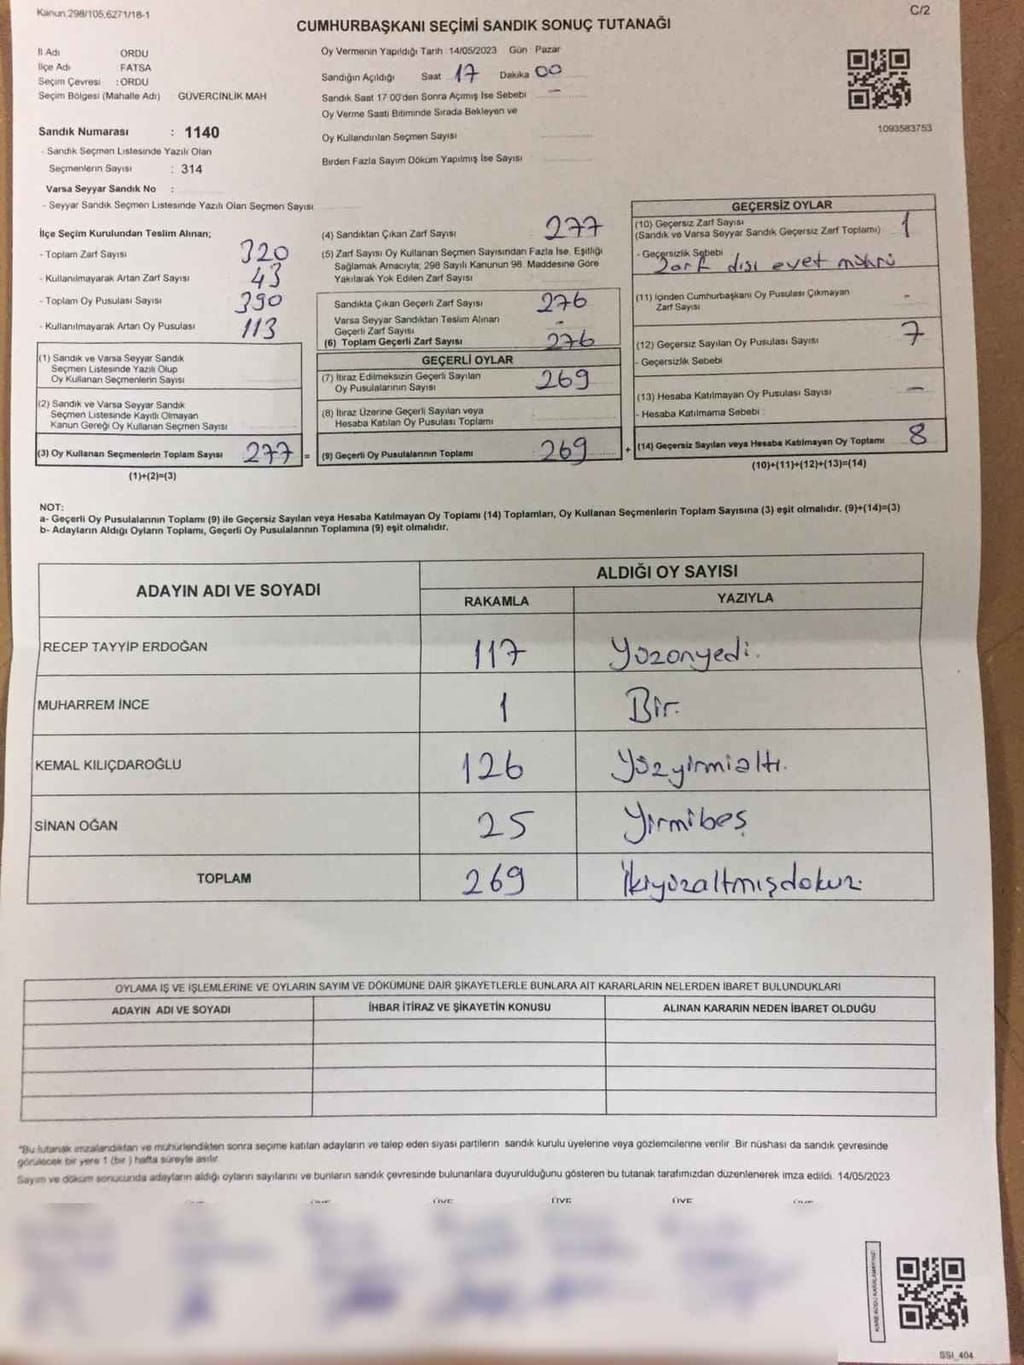 Kanun 298/105,6271/18-1
C/2
CUMHURBAŞKANI SEÇİMİ SANDIK SONUÇ TUTANAĞI
İl Adı ORDU
İlçe Adı FATSA
Seçim Çevresi : ORDU
Seçim Bölgesi (Mahalle Adı) GÜVERCİNLİK MAH
Sandık Numarası : 1140
- Sandık Seçmen Listesinde Yazılı Olan
Seçmenlerin Sayısı : 314
Varsa Seyyar Sandık No :
- Seyyar Sandık Seçmen Listesinde Yazılı Olan Seçmen Sayısı
Oy Vermenin Yapıldığı Tarih 14/05/2023 Gün : Pazar
Sandığın Açıldığı Saat 17 Dakika 00
Sandık Saat 17 00'den Sonra Açımış İse Sebebi -
Oy Verme Saati Bitiminde Sırada Bekleyen ve
Oy Kullandırılan Seçmen Sayısı
Birden Fazla Sayım Döküm Yapılmış İse Sayısı
1093583753
İlçe Seçim Kurulundan Teslim Alınan;
- Toplam Zarf Sayısı 320
- Kullanılmayarak Artan Zarf Sayısı 43
- Toplam Oy Pusulası Sayısı 390
- Kullanılmayarak Artan Oy Pusulası 113
(1) Sandık ve Varsa Seyyar Sandık
Seçmen Listesinde Yazılı Olup
Oy Kullanan Seçmenlerin Sayısı
(2) Sandık ve Varsa Seyyar Sandık
Seçmen Listesinde Kayıtlı Olmayan
Kanun Gereği Oy Kullanan Seçmen Sayısı
(3) Oy Kullanan Seçmenlerin Toplam Sayısı 277 =
(1)+(2)=(3)
(4) Sandıktan Çıkan Zarf Sayısı 277
(5) Zarf Sayısı Oy Kullanan Seçmen Sayısından Fazla İse, Eşitliği
Sağlamak Amacıyla; 298 Sayılı Kanunun 98. Maddesine Göre
Yakılarak Yok Edilen Zarf Sayısı
Sandıkta Çıkan Geçerli Zarf Sayısı 276
Varsa Seyyar Sandıktan Teslim Alınan
Geçerli Zarf Sayısı -
(6) Toplam Geçerli Zarf Sayısı 276
GEÇERLİ OYLAR
(7) İtiraz Edilmeksizin Geçerli Sayılan
Oy Pusulalarının Sayısı 269
(8) İtiraz Üzerine Geçerli Sayılan veya
Hesaba Katılan Oy Pusulası Toplamı
(9) Geçerli Oy Pusulalarının Toplamı 269 +
GEÇERSİZ OYLAR
(10) Geçersiz Zarf Sayısı
(Sandık ve Varsa Seyyar Sandık Geçersiz Zarf Toplamı) 1
- Geçersizlik Sebebi
Zarf dışı evet mührü
(11) İçinden Cumhurbaşkanı Oy Pusulası Çıkmayan
Zarf Sayısı -
(12) Geçersiz Sayılan Oy Pusulası Sayısı 7
- Geçersizlik Sebebi
(13) Hesaba Katılmayan Oy Pusulası Sayısı -
- Hesaba Katılmama Sebebi :
(14) Geçersiz Sayılan veya Hesaba Katılmayan Oy Toplamı 8
(10)+(11)+(12)+(13)=(14)
NOT:
a- Geçerli Oy Pusulalarının Toplamı (9) ile Geçersiz Sayılan veya Hesaba Katılmayan Oy Toplamı (14) Toplamları, Oy Kullanan Seçmenlerin Toplam Sayısına (3) eşit olmalıdır. (9)+(14)=(3)
b- Adayların Aldığı Oyların Toplamı, Geçerli Oy Pusulalarının Toplamına (9) eşit olmalıdır.
ADAYIN ADI VE SOYADI
ALDIĞI OY SAYISI
RAKAMLA YAZIYLA
RECEP TAYYİP ERDOĞAN 117 Yüzonyedi.
MUHARREM İNCE 1 Bir.
KEMAL KILIÇDAROĞLU 126 Yüzyirmialtı.
SİNAN OĞAN 25 Yirmibeş
TOPLAM 269 İkiyüzaltmışdokuz.
OYLAMA İŞ VE İŞLEMLERİNE VE OYLARIN SAYIM VE DÖKÜMÜNE DAİR ŞİKAYETLERLE BUNLARA AİT KARARLARIN NELERDEN İBARET BULUNDUKLARI
ADAYIN ADI VE SOYADI İHBAR İTİRAZ VE ŞİKAYETİN KONUSU ALINAN KARARIN NEDEN İBARET OLDUĞU
*Bu tutanak imzalandıktan ve mühürlendikten sonra seçime katılan adayların ve talep eden siyasi partilerin sandık kurulu üyelerine veya gözlemcilerine verilir. Bir nüshası da sandık çevresinde
görülecek bir yere 1 (bir) hafta süreyle asılır.
Sayım ve döküm sonucunda adayların aldığı oyların sayılarını ve bunların sandık çevresinde bulunanlara duyurulduğunu gösteren bu tutanak tarafımızdan düzenlenerek imza edildi. 14/05/2023
ÜYE ÜYE ÜYE
SSI_404